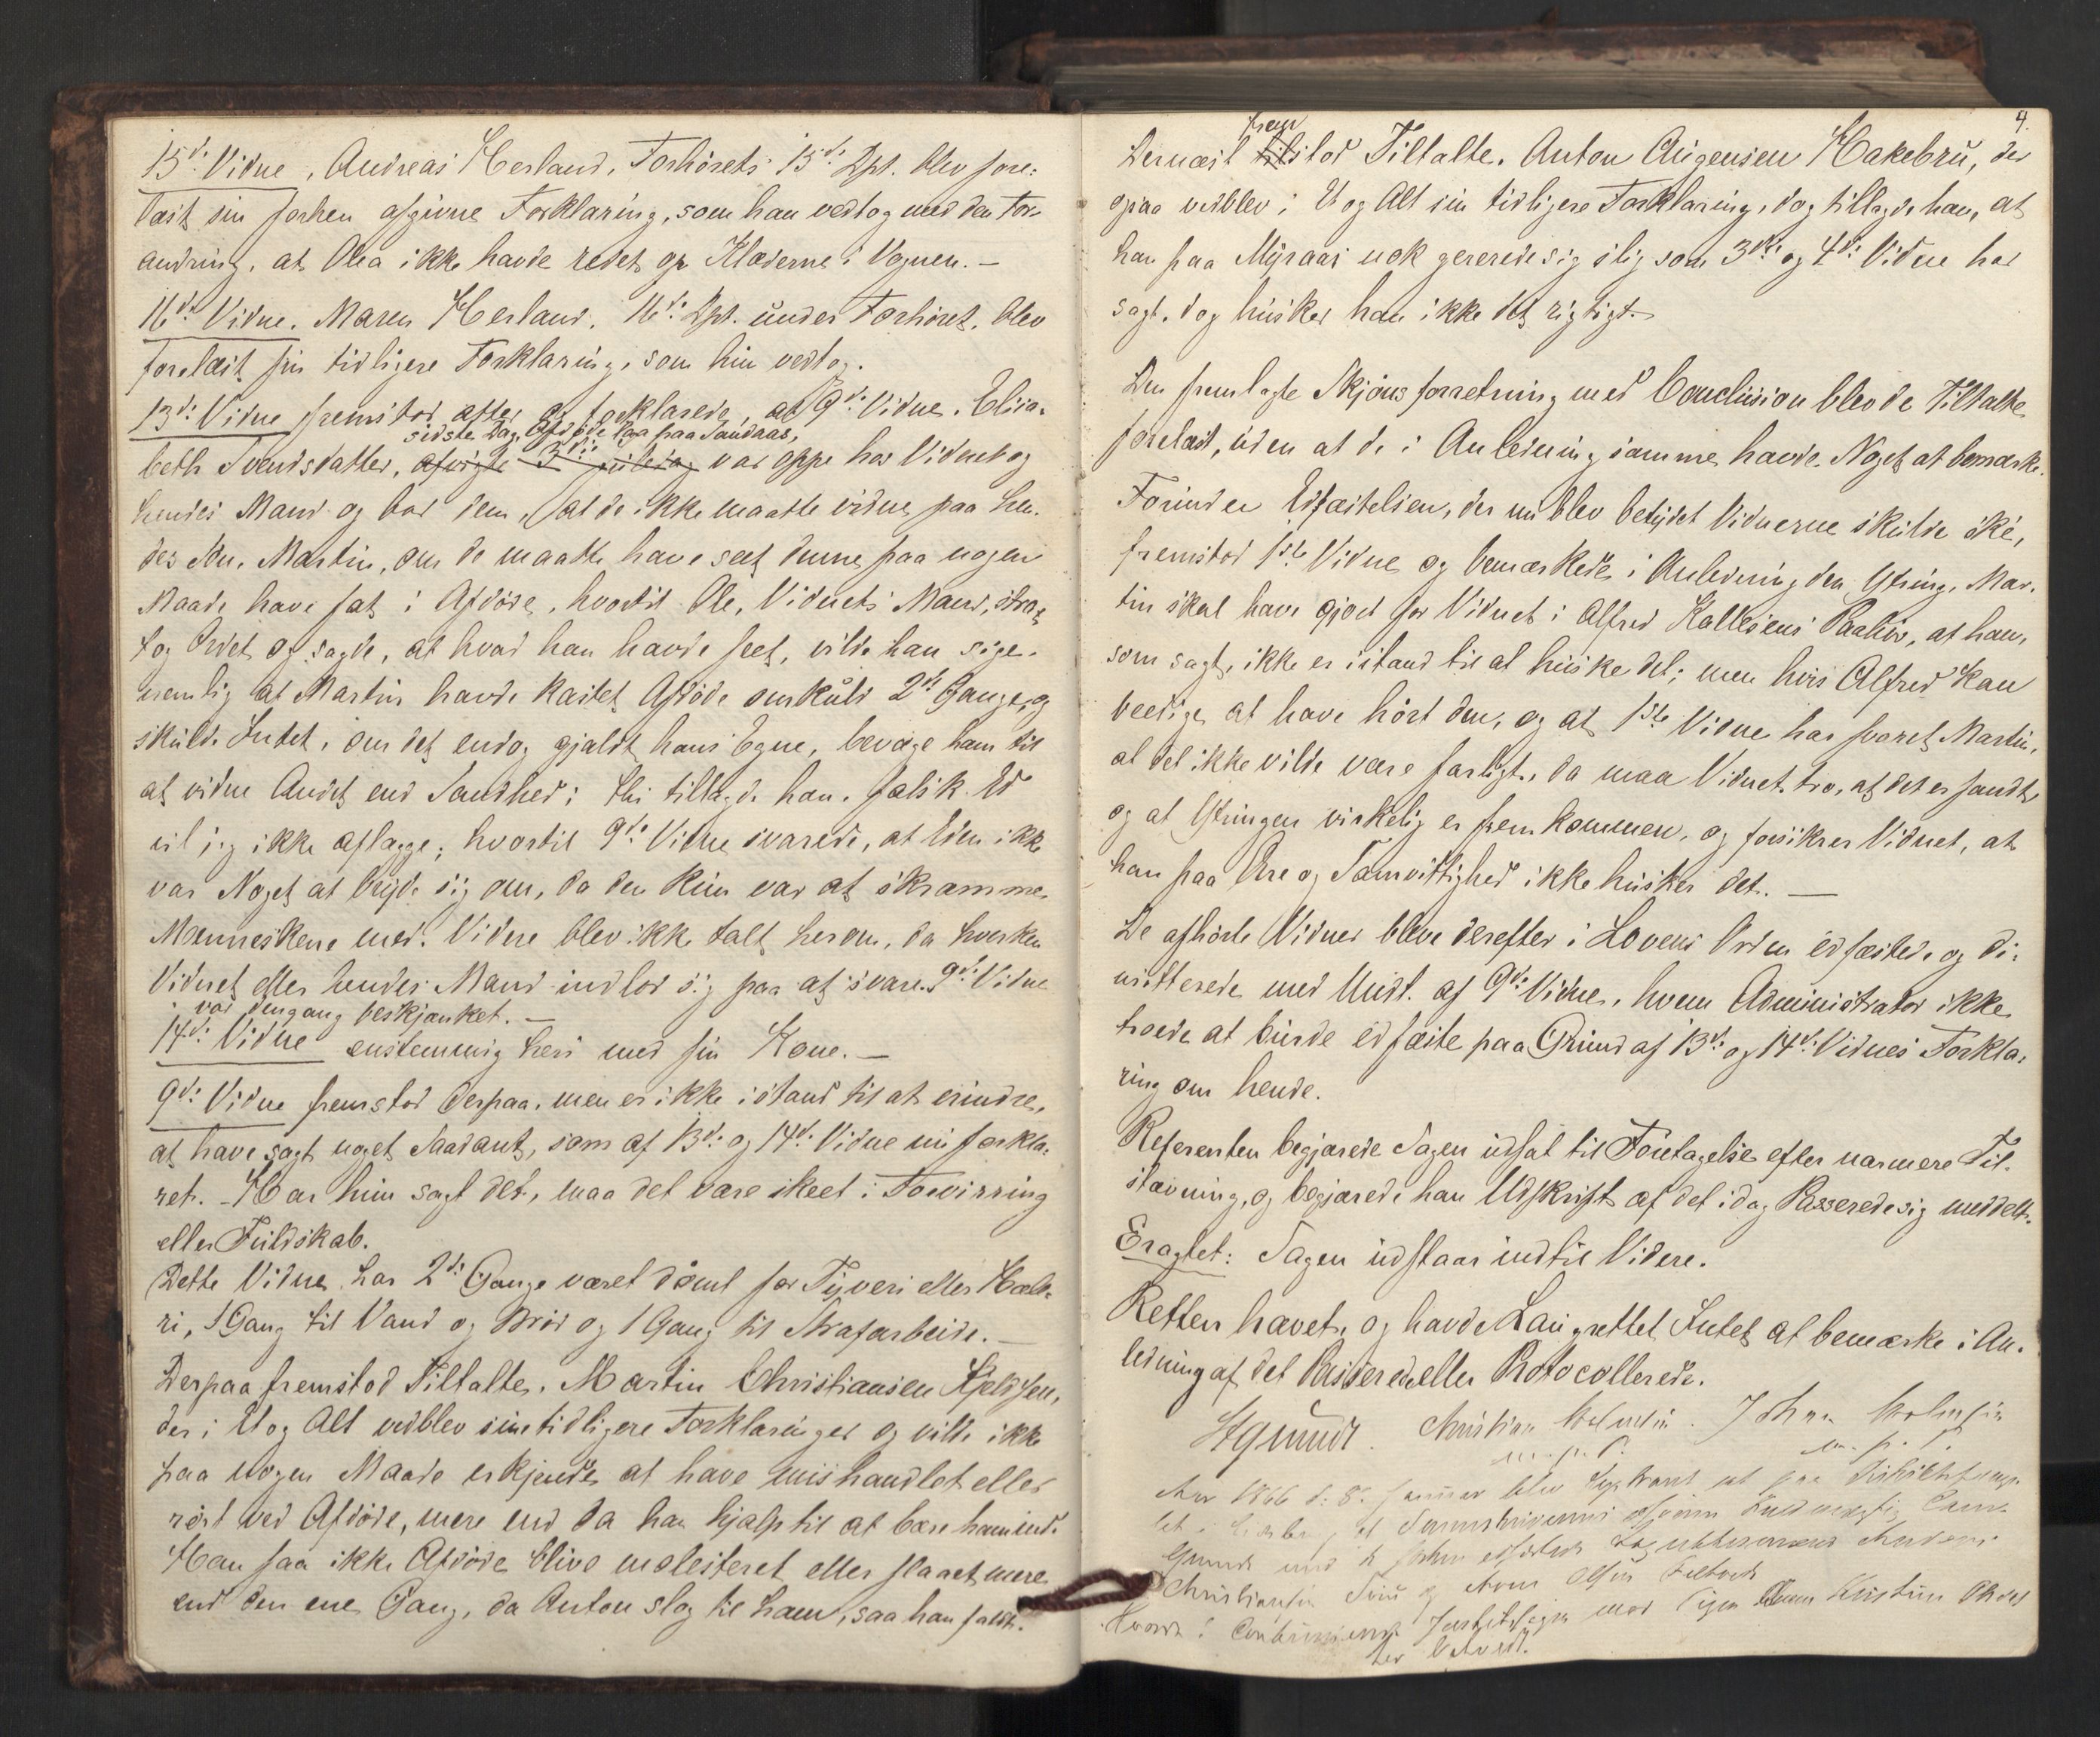 15de Vidne, Andreas Herland, Forhörets 15de Dpt. blev fore:
læst sin forhen afgivne Forklaring, som han vedtog med den For-
andring, at Olea ikke havde redet op Klæderne i Vognen. –
16de Vidne. Maren Herland, 16de Dpt. under Forhöret, blev
forelæst sin tidligere Forklaring, som hun vedtog.
13de Vidne fremstod atter og forklarede, at 9de Vidne, Elisa-
sidste Dag Afdöde laa paa Sandaas,
beth Svendsdatter, afvigte 3die Juledag var oppe hos Vidnet og
hendes Mand og bad dem, at de ikke maatte vidne paa hen-
des Sön, Martin, om de maatte have seet denne paa nogen
Maade have fat i Afdöde, hvortil Ole, Vidnets Mand, strax
tog Ordet og sagde, at hvad han havde seet, vilde han sige,
nemlig at Martin havde kastet Afdöde omkuld 2de Gange, og
skulde Intet, om det endog gjaldt hans Egne, bevæge ham til
at vidne Andet end Sandhed; thi tillagde han, falsk Ed
vil jeg ikke aflægge; hvortil 9de Vidne svarede, at Eden ikke
var Noget at bryde sig om, da den kun var at skræmme
Menneskene med. Videre blev ikke talt herom, da hverken
Vidnet eller hendes Mand indlod sig paa at svare. 9de Vidne
var dengang beskjænket. –
14de Vidne enstemmig heri med sin Kone. –
9de Vidne fremstod derpaa, men er ikke istand til at erindre,
at have sagt noget Saadant, som af 13de og 14de Vidne nu forkla-
ret. – Har hun sagt det, maa det være skeet i Forvirring
eller Fuldskab.
Dette Vidne har 2de Gange været dömt for Tyveri eller Hæle-
ri, 1 Gang til Vand og Bröd og 1 Gang til Strafarbeide. –
Derpaa fremstod Tiltalte, Martin Christiansen Kjeldsen,
der i Et og Alt vedblev sine tidligere Forklaringer og vilde ikke
paa nogen Maade erkjende at have mishandlet eller
rört ved Afdöde, mere end da han hjalp til at bære ham ind.
Han saa ikke Afdöde blive molesteret eller slaaet mere
end den ene Gang, da Anton slog til ham, saa han faldt.
4.
frem
Dernæst tilstod Tiltalte, Anton Augensen Hakebru, der
ogsaa vedblev i Et og Alt sin tidligere Forklaring, dog tillagde han, at
han paa Myraas nok gererede sig slig som 3die og 4de Vidne har
sagt, dog husker han ikke det rigtigt. –
Den fremlagte Skjönsforretning med Conclusion blev de Tiltalte
forelæst, uden at de i Anledning samme havde Noget at bemærke.
Forinden Edfæstelsen, der nu blev betydet Vidnerne skulde ske,
fremstod 1ste Vidne og bemærkede i Anledning den Ytring, Mar-
tin skal have gjort for Vidnet i Alfred Kallesens Paahör, at han,
som sagt, ikke er istand til at huske det; men hvis Alfred kan
beedige at have hört den, og at 1ste Vidne har svaret Martin,
at det ikke vilde være farligt, da maa Vidnet tro, at det er sandt,
og at Ytringen virkelig er fremkommen, og forsikrer Vidnet, at
han paa Ære og Samvittighed ikke husker det. –
De afhörte Vidner bleve derefter i Lovens Orden edfæstede og di-
mitterede med Undt. af 9de Vidne, hvem Administrator ikke
troede at burde edfæste paa Grund af 13de og 14de Vidnes Forkla-
ring om hende.
Referenten begjærede Sagen udsat til Foretagelse efter nærmere Til-
stævning, og begjærede han Udskrift af det idag Passerede sig meddelt.
Eragtet: Sagen udstaar indtil Videre.
Retten hævet, og havde Laugrettet Intet at bemærke i An-
ledning af det Passerede eller Protocollerede.
Christian John
m. p. P. m. p. P.
Aar 1866 d: 8de Januar blev sat paa
Sorenskrivererens Fuldmægtig
med de
Christiansen og Olsen
Justitssagen mod Pigen Kirstine